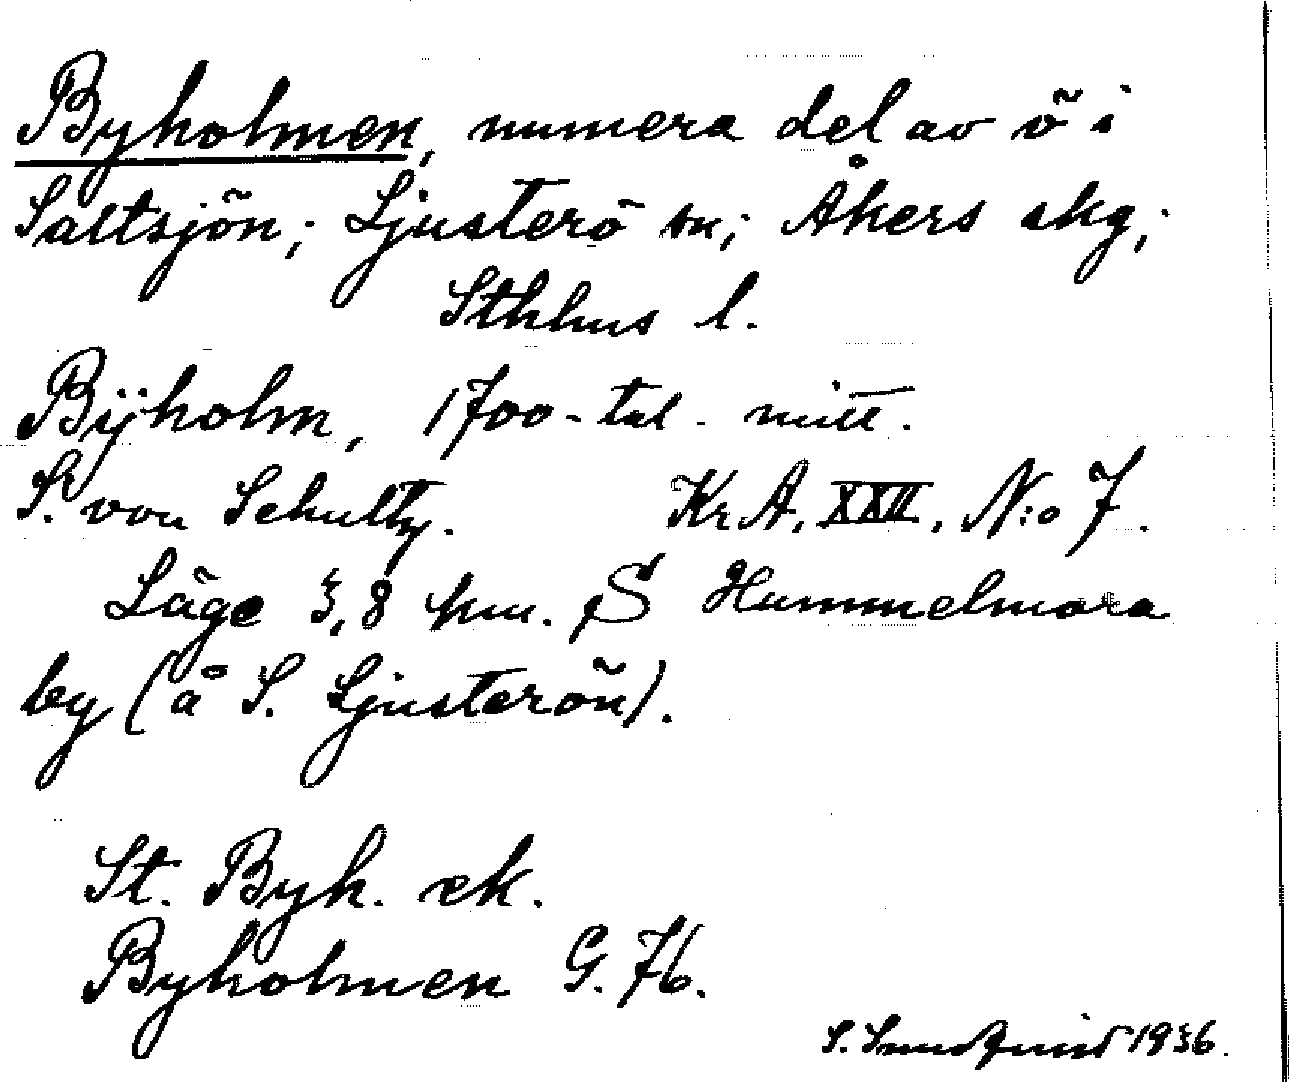 Byholmen, numera del av ö i
Saltsjön; Ljusterö sn; Åkers skg;
Sthlms l.
Bÿholm, 1700-tal. mitt.
S. von Schultz. Kr A, XXII, N:o 7.
Läge 3,8 km. S Hummelmora
by (å S. Ljusterön).
St. Byh. ek.
Byholmen G. 76.
S. 1936.